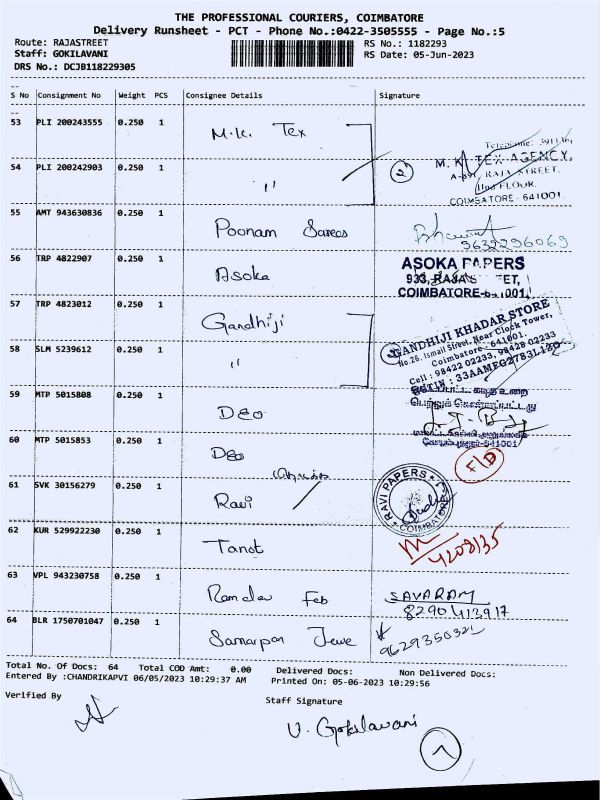 THE PROFESSIONAL COURIERS, COIMBATORE
Delivery Runsheet - PCT - Phone No.:0422-3505555 - Page No.:5
Route: RAJASTREET RS No.: 1182293
Staff: GOKILAVANI RS Date: 05-Jun-2023
DRS No.: DCJB118229305
S No Consignment No Weight PCS Consignee Details Signature
53 PLI 200243555 0.250 1 M.K. Tex
54 PLI 200242903 0.250 1 "
2 M. K. TEX AGENCY,
RAJA STREET,
IInd FLOOR,
COIMBATORE - 641001.
55 AMT 943630836 0.250 1 Poonam Sarees
56 TRP 4822907 0.250 1 Asoka
ASOKA PAPERS
COIMBATORE-641001
57 TRP 4823012 0.250 1 Gandhiji
58 SLM 5239612 0.250 1 "
GANDHIJI KHADAR STORE
No.26, Ismail Street, Near Clock Tower,
Coimbatore - 641001.
Cell : 98422 02233, 98428 02233
59 MTP 5015808 0.250 1 DEO
60 MTP 5015853 0.250 1 DEO
61 SVK 30156279 0.250 1 Ravi
RAVI PAPERS
COIMBATORE
62 KUR 529922230 0.250 1 Tanot
63 VPL 943230758 0.250 1 Ramdev Feb
SAVARAM
8290413917
64 BLR 1750701047 0.250 1 Samarpan Jewe
9629350321
Total No. Of Docs: 64 Total COD Amt: 0.00 Delivered Docs: Non Delivered Docs:
Entered By :CHANDRIKAPVI 06/05/2023 10:29:37 AM Printed On: 05-06-2023 10:29:56
Verified By Staff Signature
V. Gokilavani